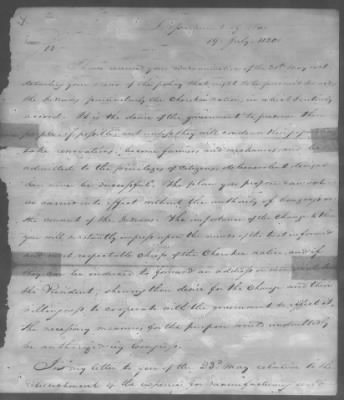 Department of War
19 July 1820.
Sir
I have received your communication of the 20th May last
detailing your views of the policy that ought to be pursued toward
the Indians particularly the Cherokee nation, in which I entirely
accord. It is the desire of the government to preserve these
people if possible and unless they will
take reservations, become farmers and mechanics and be
admitted to the privileges of citizens
can never be successful. The plan you propose can not
be carried into effect without the authority of Congress or
the consent of the Indians. The importance of the change
you will constantly impress upon the minds of the best informed
and most respectable Chiefs of the Cherokee nation, and if
they can be induced to forward an address on this subject to
the President, shewing their desire for the change and their
willingness to cooperate with the government to effect it,
the necessary measures for the purpose would undoubtedly
be authorized by Congress.
In my letter to you of the 23d May relative to the
of the expense for manufacturing